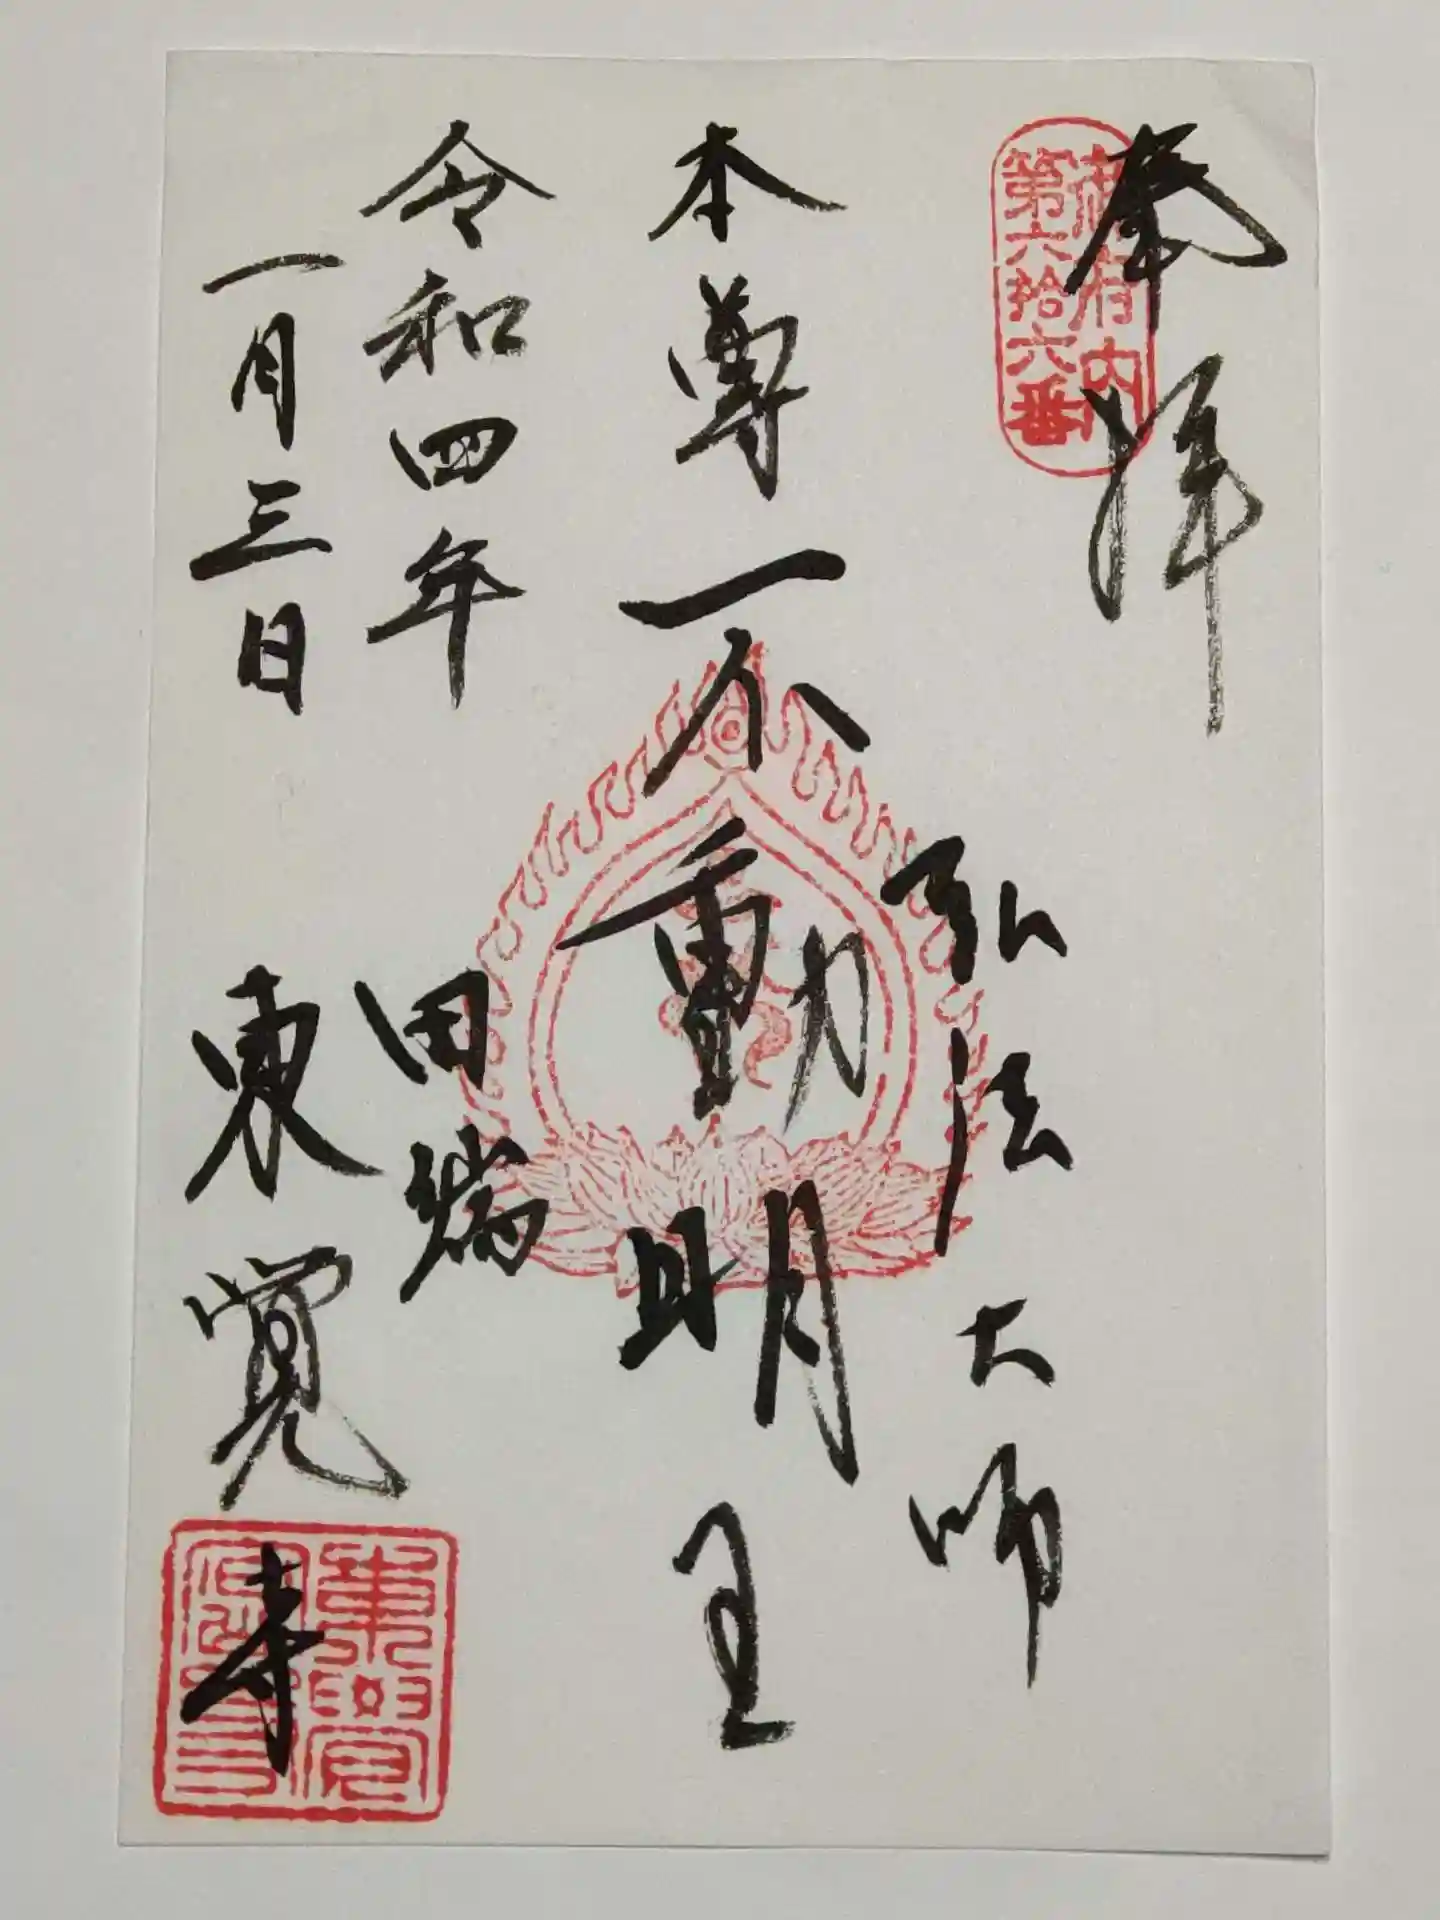 奉拝
御府内
第六拾六番
弘法大師
本尊不動明王
令和四年
一月三日
田端
東覚寺